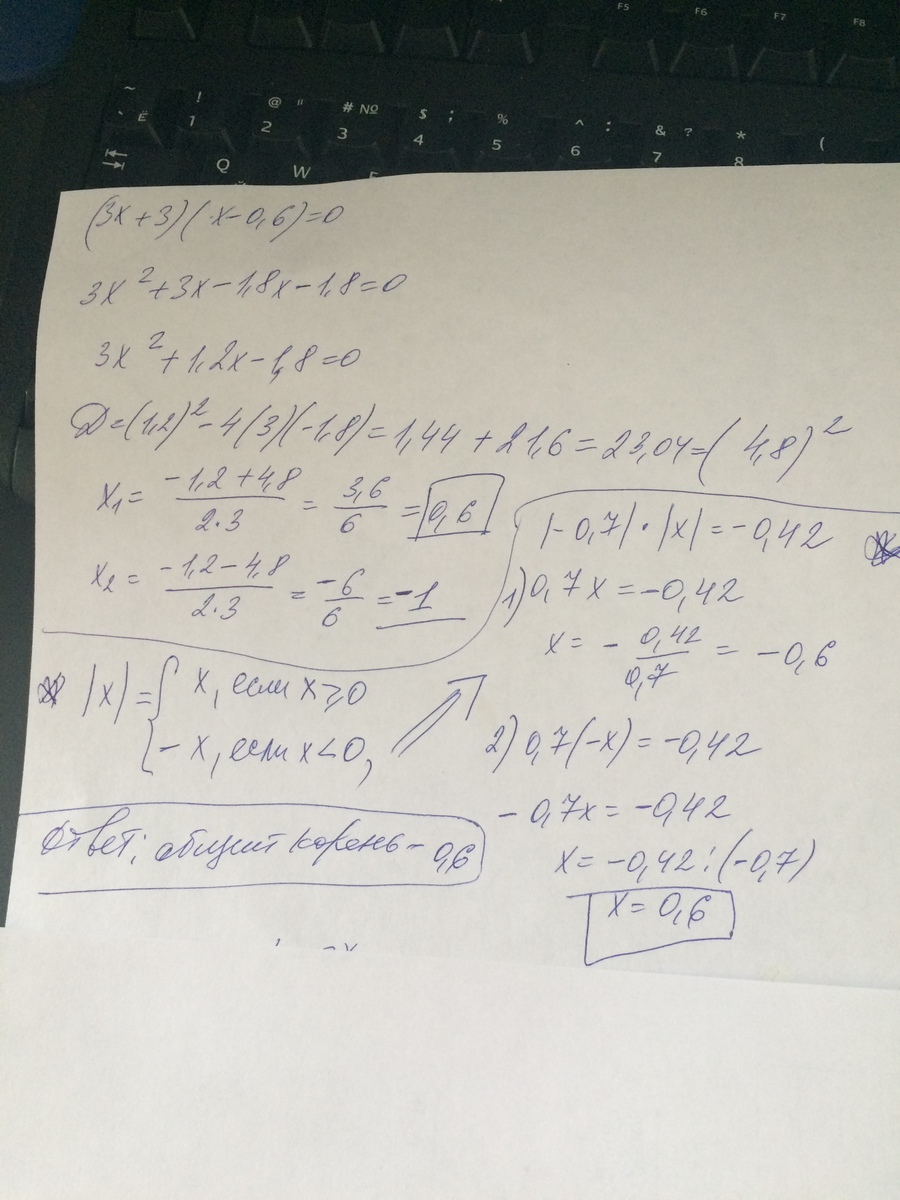 F5 F6 F7 F8
~ ! @ " # № $ ; % ^ : & ? * (
` Ё 1 2 3 4 5 6 7 8
Q W
(3x+3)(x-0,6)=0
3x²+3x-1,8x-1,8=0
3x²+1,2x-1,8=0
D=(1,2)²-4(3)(-1,8)=1,44+21,6=23,04=(4,8)²
x₁= (-1,2+4,8)/(2·3) = 3,6/6 = 0,6
x₂= (-1,2-4,8)/(2·3) = -6/6 = -1
|-0,7|·|x|=-0,42
1) 0,7x=-0,42
x= - 0,42/0,7 = -0,6
|x|={ x, если x≥0
-x, если x<0,
2) 0,7(-x)=-0,42
-0,7x=-0,42
x=-0,42:(-0,7)
x=0,6
Ответ: общий корень - 0,6